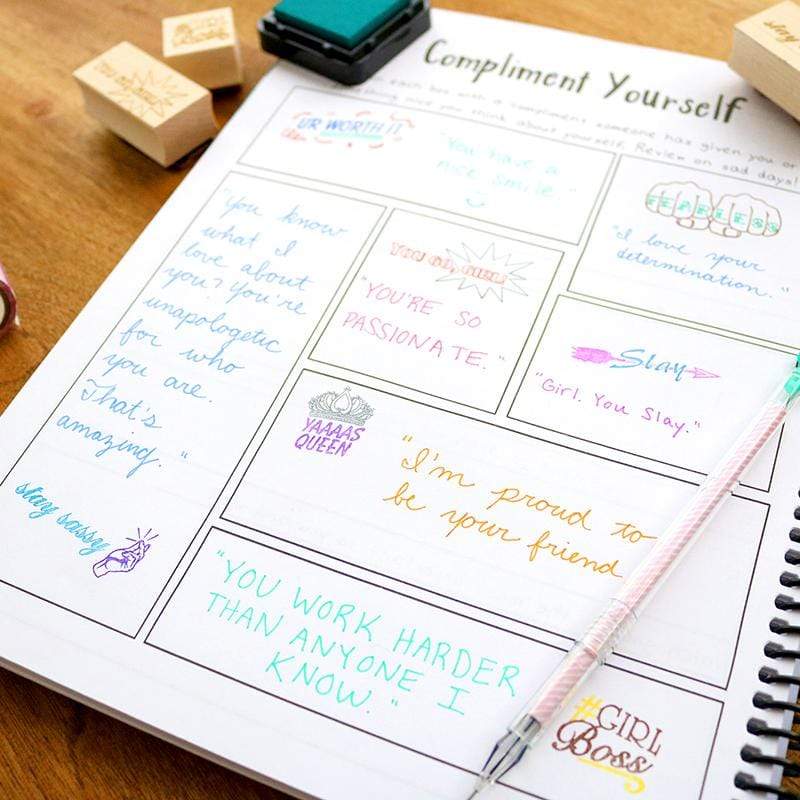 Compliment Yourself
each box with a compliment someone has given you or
something nice you think about yourself. Review on sad days!
UR WORTH IT
"You have a
nice smile."
FEARLESS
"I love your
determination."
"You know
what I
love about
you? You're
unapologetic
for who
you are.
That's
amazing."
stay sassy
YOU GO, GIRL
"YOU'RE SO
PASSIONATE."
Slay
"Girl. You Slay."
YAAAAS
QUEEN
"I'm proud to
be your friend
"YOU WORK HARDER
THAN ANYONE I
KNOW."
#GIRL
Boss
slay